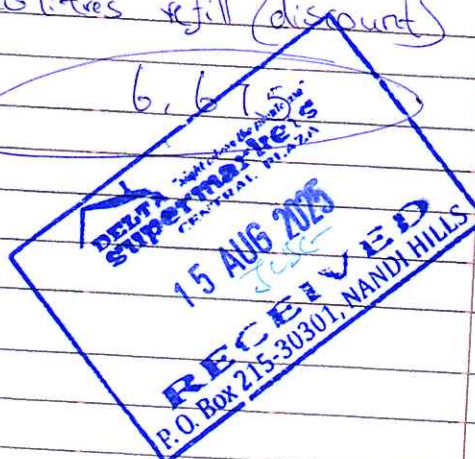 litres refill (discount)
6,675
"right where the people are"
DELTA
supermarkets
CENTRAL PLAZA
15 AUG 2025
RECEIVED
P. O. Box 215-30301, NANDI HILLS